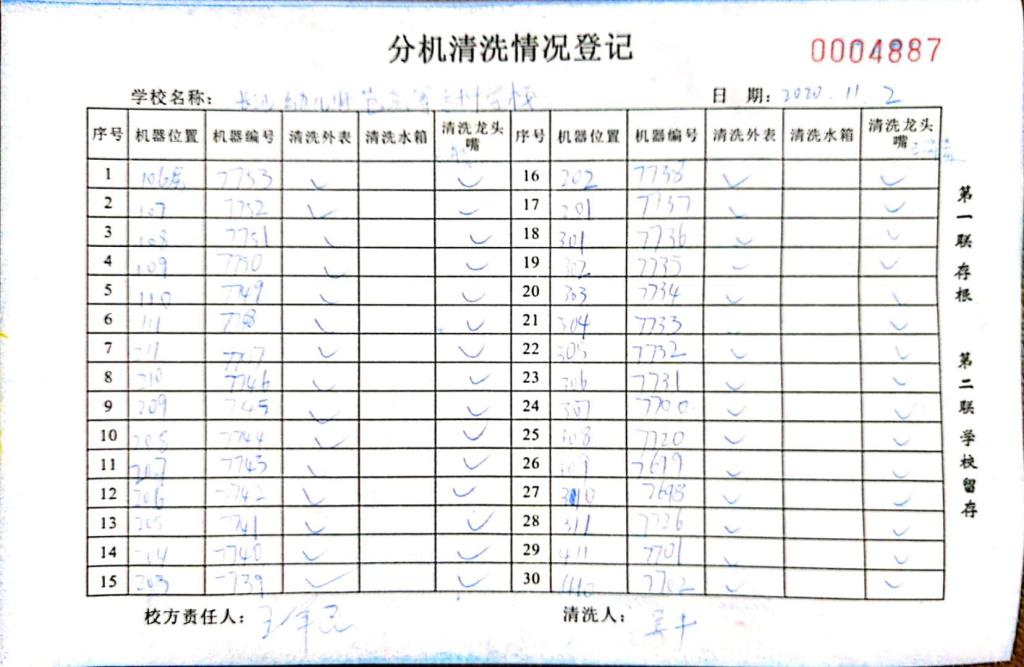 分机清洗情况登记
0004887
学校名称：
日 期：2020.11.2
序号 机器位置 机器编号 清洗外表 清洗水箱 清洗龙头嘴 序号 机器位置 机器编号 清洗外表 清洗水箱 清洗龙头嘴
1 7753 ✓ ✓ 16 202 7738 ✓ ✓
2 107 7752 ✓ ✓ 17 201 7737 ✓ ✓
3 108 7751 ✓ ✓ 18 301 7736 ✓ ✓
4 109 7750 ✓ ✓ 19 302 7735 ✓ ✓
5 110 7749 ✓ ✓ 20 303 7734 ✓ ✓
6 111 ✓ ✓ 21 304 7733 ✓ ✓
7 ✓ ✓ 22 305 7732 ✓ ✓
8 210 7746 ✓ ✓ 23 306 7731 ✓ ✓
9 209 7745 ✓ ✓ 24 307 7700 ✓ ✓
10 208 7744 ✓ ✓ 25 308 7720 ✓ ✓
11 207 7743 ✓ ✓ 26 309 7699 ✓ ✓
12 206 7742 ✓ ✓ 27 310 7698 ✓ ✓
13 205 7741 ✓ ✓ 28 311 7726 ✓ ✓
14 7740 ✓ ✓ 29 411 7701 ✓ ✓
15 203 7739 ✓ ✓ 30 7702 ✓ ✓
校方责任人： 清洗人：
第一联 存根 第二联 学校留存